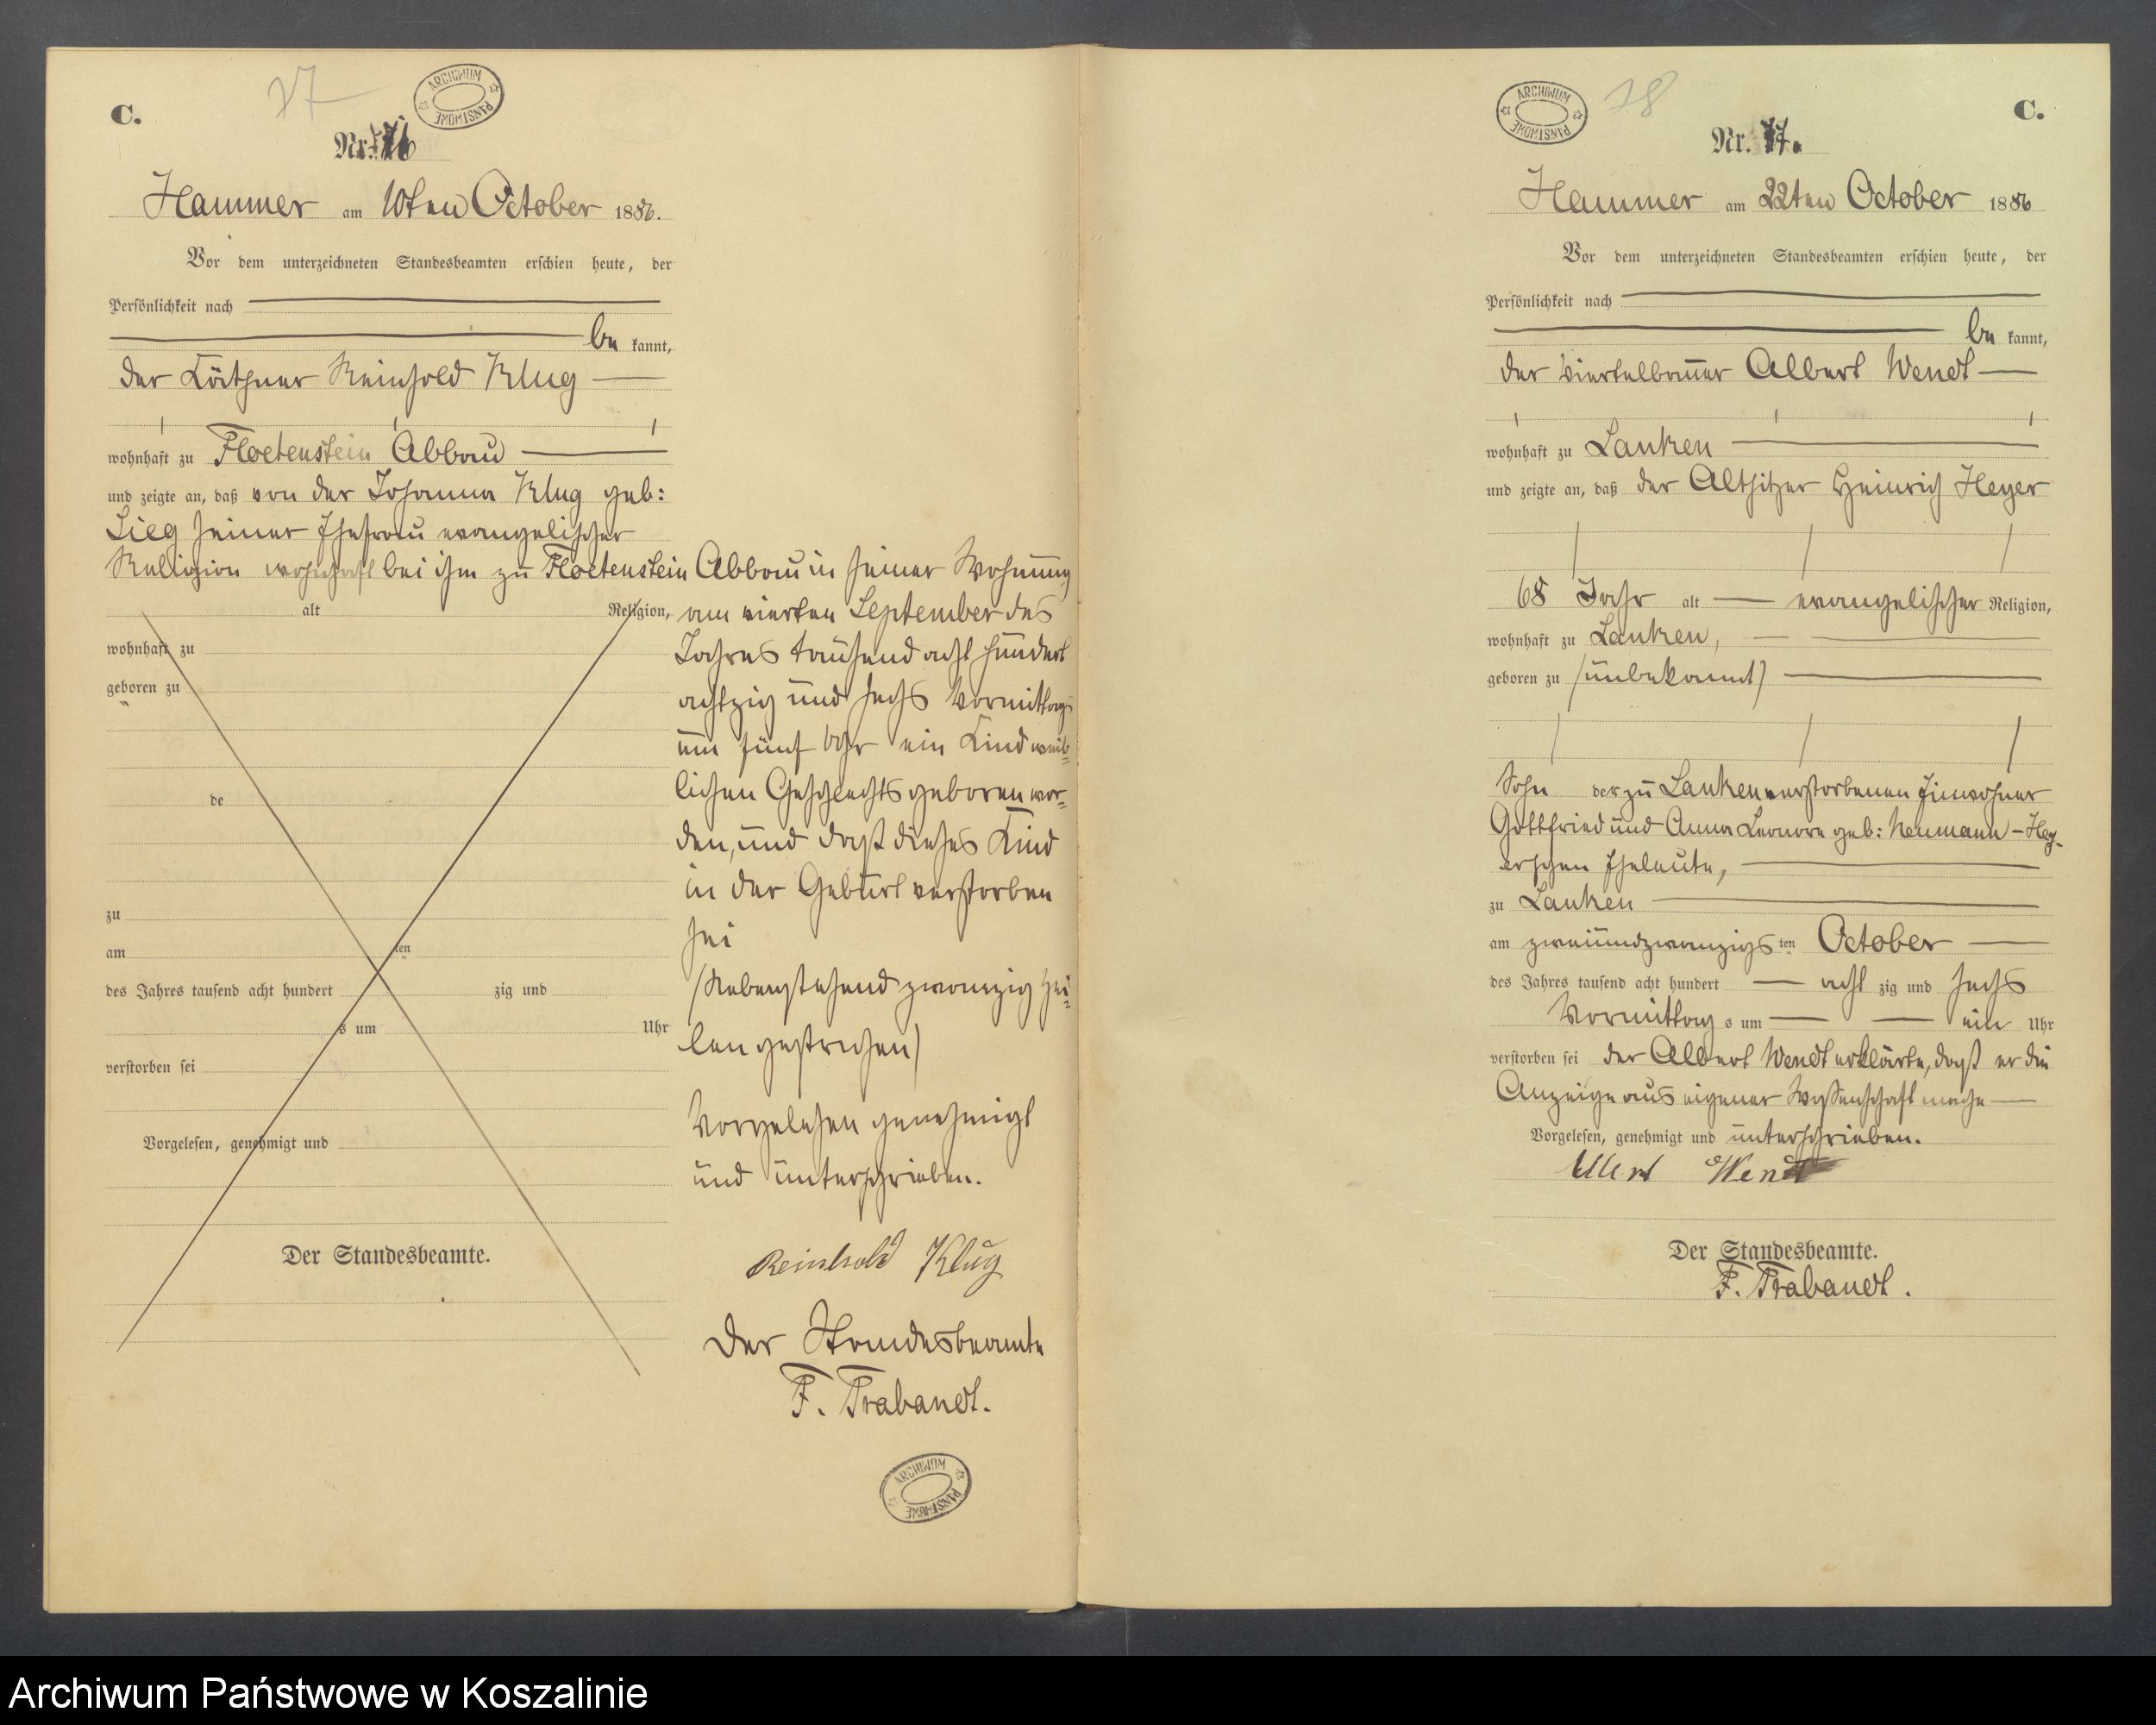 C.
77
ARCHIWUM PAŃSTWOWE
Nr. 76
Hammer am 10ten October 1886.
Vor dem unterzeichneten Standesbeamten erschien heute, der
Persönlichkeit nach
be kannt,
der Käthner Reinhold Klug
wohnhaft zu Floetenstein Abbau
und zeigte an, daß von der Johanna Klug geb:
Lieg seiner Ehefrau evangelischer
Religion wohnhaft bei ihm zu Floetenstein Abbau in seiner Wohnung
alt Religion,
wohnhaft zu
geboren zu
de
zu
am ten
des Jahres tausend acht hundert zig und
s um Uhr
verstorben sei
Vorgelesen, genehmigt und
Der Standesbeamte.
am vierten September des
Jahres tausend acht hundert
achtzig und sechs Vormittags
um fünf Uhr ein Kind weib=
lichen Geschlechts geboren wor=
den, und daß dieses Kind
in der Geburt verstorben
sei
(Nebenstehend zwanzig Zei=
len gestrichen)
Vorgelesen genehmigt
und unterschrieben.
Reinhold Klug
Der Standesbeamte
F. Trabandt.
ARCHIWUM PAŃSTWOWE
ARCHIWUM PAŃSTWOWE
78
C.
Nr. 77.
Hammer am 22ten October 1886
Vor dem unterzeichneten Standesbeamten erschien heute, der
Persönlichkeit nach
be kannt,
der Viertelbauer Albert Wendt
wohnhaft zu Lanken
und zeigte an, daß der Altsitzer Heinrich Heyer
68 Jahr alt evangelischer Religion,
wohnhaft zu Lanken,
geboren zu (unbekannt)
Sohn der zu Lanken verstorbenen Einwohner
Gottfried und Anna Leonore geb: Neumann-Hey-
erschen Eheleute,
zu Lanken
am zweiundzwanzigs ten October
des Jahres tausend acht hundert acht zig und sechs
Vormittag s um ein Uhr
verstorben sei der Albert Wendt erklärte, daß er die
Anzeige aus eigener Wissenschaft mache
Vorgelesen, genehmigt und unterschrieben.
Albert Wendt
Der Standesbeamte.
F. Trabandt.
Archiwum Państwowe w Koszalinie